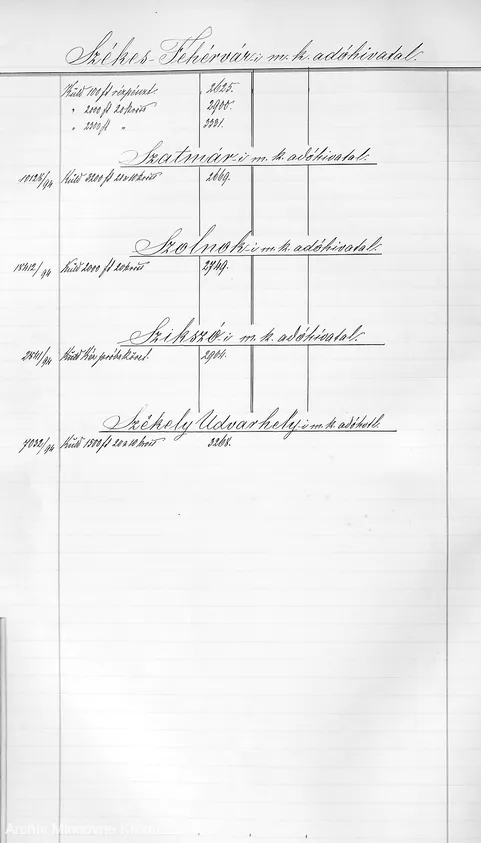 Székes-Fehérvár-i m. k. adóhivatal.
Küld 100 ft rézpénzt. 2625.
" 2000 ft 20 krost 2900.
" 2300 ft " 3331.
Szatmár-i m. k. adóhivatal.
10128/94 Küld 3200 ft 20 s 10 krost 2669.
Szolnok-i m. k. adóhivatal.
18412/94 Küld 2000 ft 20 krost 2749.
Szikszó-i m. k. adóhivatal.
2841/94 Küld 2904.
Székely Udvarhely-i m. k. adóhvtl.
7032/94 Küld 1500 ft 20 s 10 krost 3268.